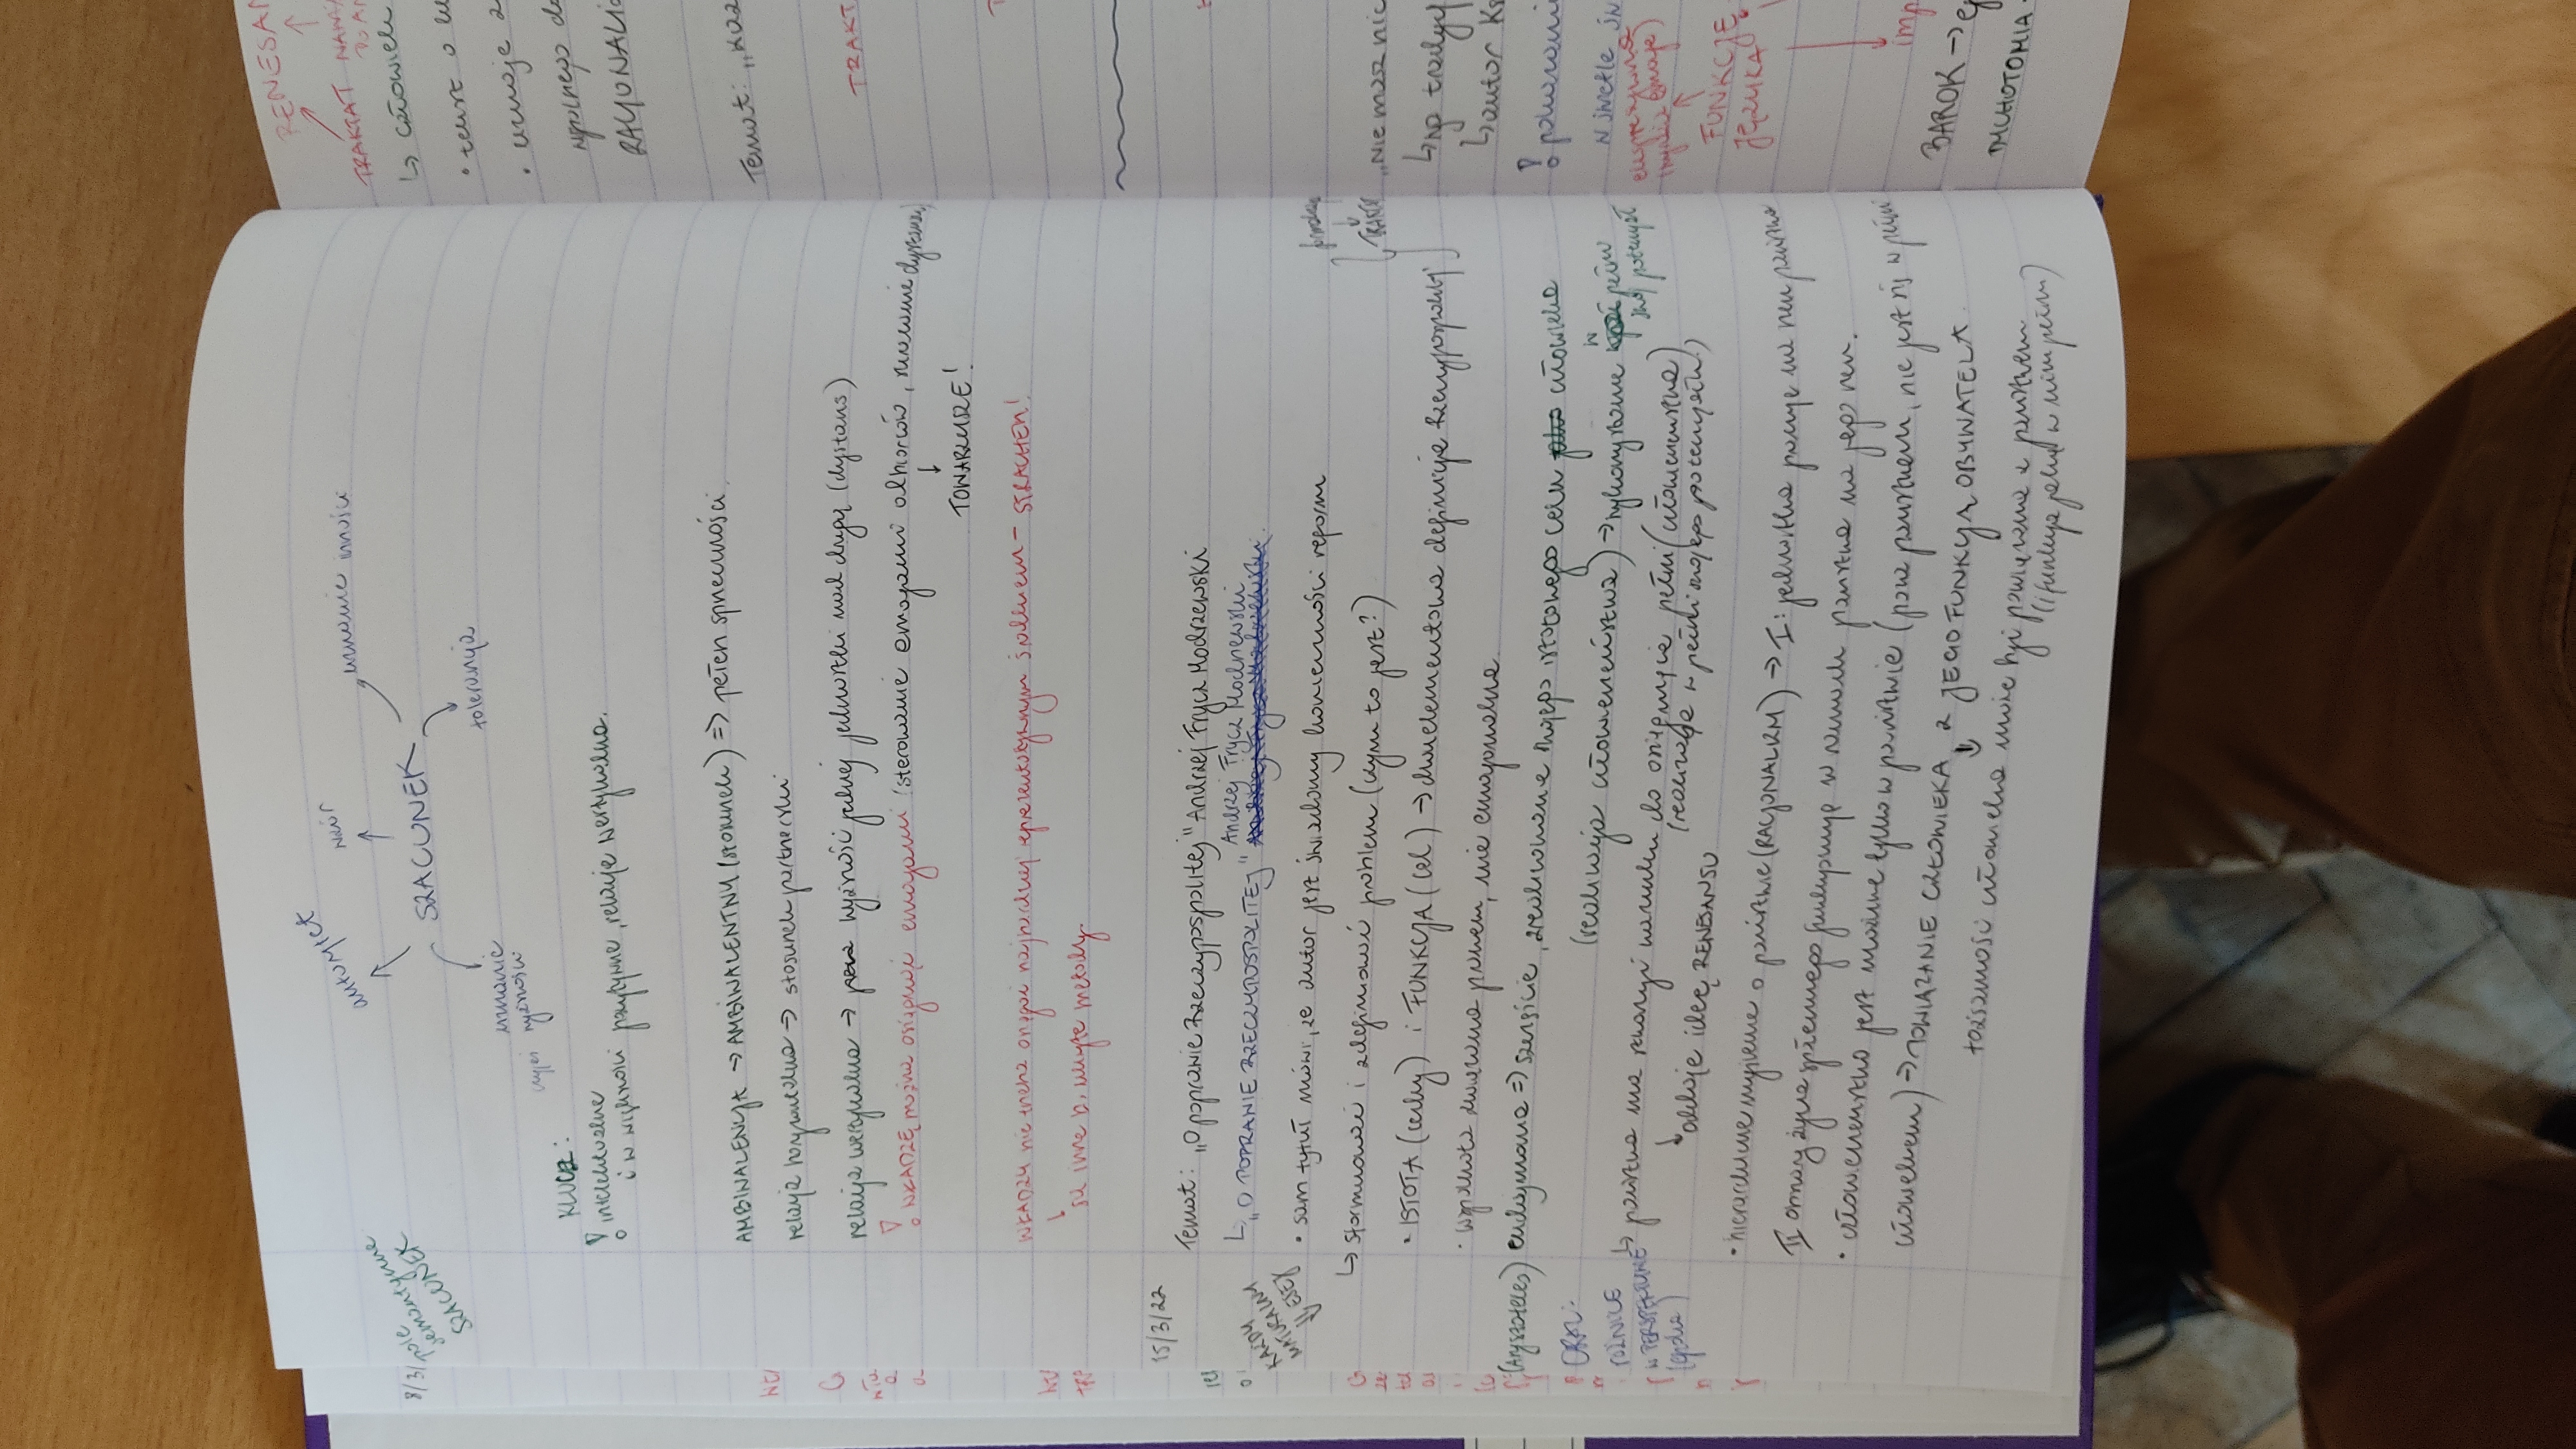 8/3/
pole
semantyczne
SZACUNEK
autorytet
wzór
uznanie inności
SZACUNEK
uznanie
czyjeś wyższości
tolerancja
KLUCZ:
! intelektualne
i w większości pozytywne, relacje wertykalna.
AMBIWALENCJA → AMBIWALENTNY (stosunek) => pełen sprzeczności.
relacja horyzontalna → stosunek partnerski
relacja wertykalna → wyższość jednej jednostki nad drugą (dystans)
! WŁADZĘ można osiągnąć emocjami (sterowanie emocjami odbiorców, skracanie dystansu)
↓
TOWARZYSZE!
WŁADZY nie trzeba osiągać najbardziej reprezentatywnym środkiem – STRACHEM!
↓
są inne b. użyte metody.
15/3/22
Temat: „O poprawie Rzeczypospolitej" Andrzej Frycz Modrzewski
↳ „O POPRAWIE RZECZYPOSPOLITEJ" Andrzej Frycz Modrzewski
KAŻDY
MATURALNY
ESEJ
• sam tytuł mówi, że autor jest świadomy konieczności reform
↳ sformułować i zdefiniować problem (czym to jest?)
→ TRAKTAT
• ISTOTA (cechy) i FUNKCJA (cel) → dwuelementowa definicja Rzeczypospolitej
• wspólnota związana prawem, nie emocjonalna.
(Arystoteles) eudajmonia => szczęście, zrealizowanie swojego istotowego celu człowieka
(realizacja człowieczeństwa) → wykorzystanie w pełni
swój potencjał
RÓŻNICE
W PERSPEKTYWIE
(epoka)
↳ państwo ma stworzyć warunki do osiągnięcia pełni (człowieczeństwa)
(realizacja w pełni swojego potencjału)
↓ oddaje ideę RENESANSU
• hierarchiczne myślenie o państwie (RACJONALIZM) → I: jednostka pracuje na rzecz państwa
II obszary życia społecznego funkcjonują w ramach państwa na jego rzecz.
• człowieczeństwo jest możliwe tylko w państwie (poza państwem, nie jest się w pełni
człowiekiem) → POWIĄZANIE CZŁOWIEKA Z JEGO FUNKCJĄ OBYWATELA
↓
tożsamość człowieka może być powiązana z państwem
(i funkcją jaką w nim pełni)
RENESAN
TRAKTAT
↳ człowiek
• tekst o
• uznaje
wspólnego
RACJONALI
Temat: „
TRAKT
„Nie masz nic
↳ np tradyc
↳ autor Ks
! pokazanie
w świetle
ekspresywna
(wyraża emocje)
↑
FUNKCJE
JĘZYKA
↓
imp
BAROK →
DYCHOTOMIA